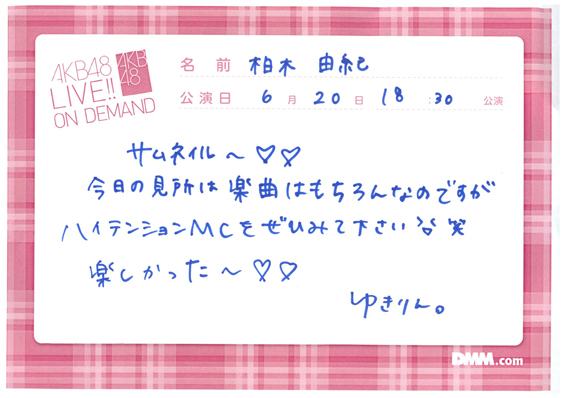 AKB48
LIVE!!
ON DEMAND
AKB
48
名前 柏木 由紀
公演日 6月20日 18:30 公演
サムネイル〜♡♡
今日の見所は楽曲はもちろんなのですが
ハイテンションMCをぜひみて下さい 笑
楽しかった〜♡♡
ゆきりん。
DMM.com